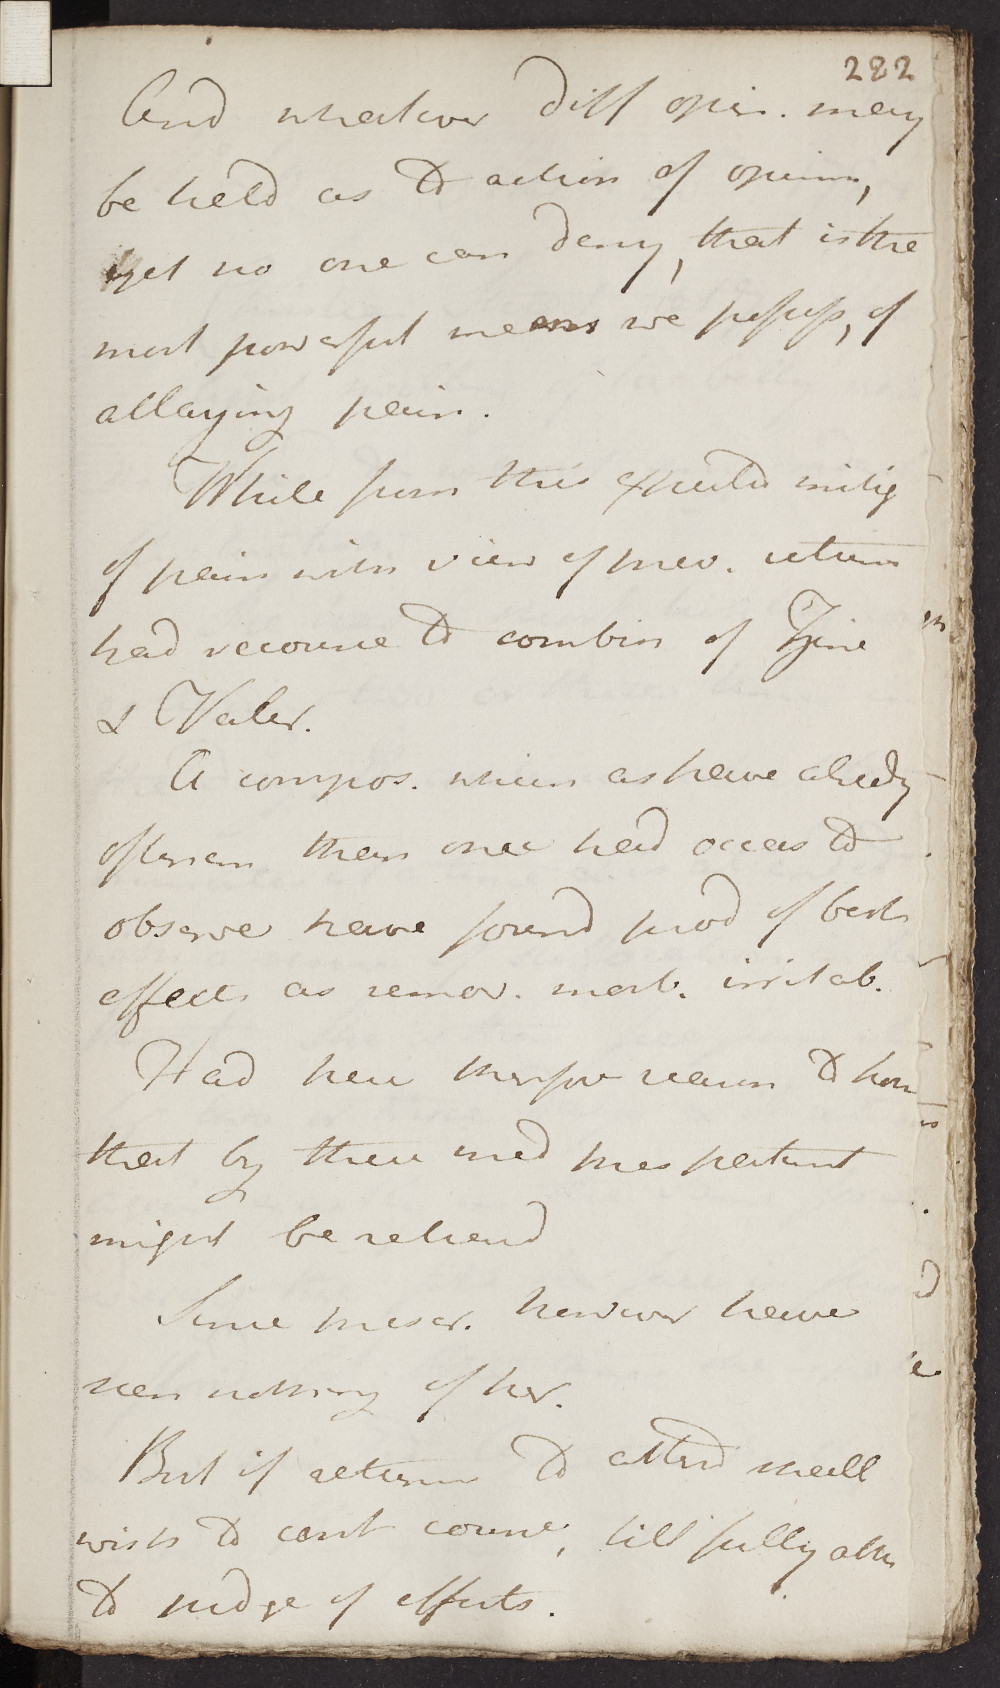 282
And whatever diff opin. may
be held as to action of opium,
yet no one can deny, that is the
most powerful means we possess, of
allaying pain.
While from this expected mitig
of pain with view of prev. return
had recourse to combin of
& Valer.
A compos. which as have already
oftener than once had occas to
observe have found prod of best
effects as remov. morb. irritab.
Had here therefore reason to hope
that by these med this patient
might be relieved
Since prescr. however have
seen nothing of her.
But if return to attend shall
wish to cont course, till fully able
to judge of effects.